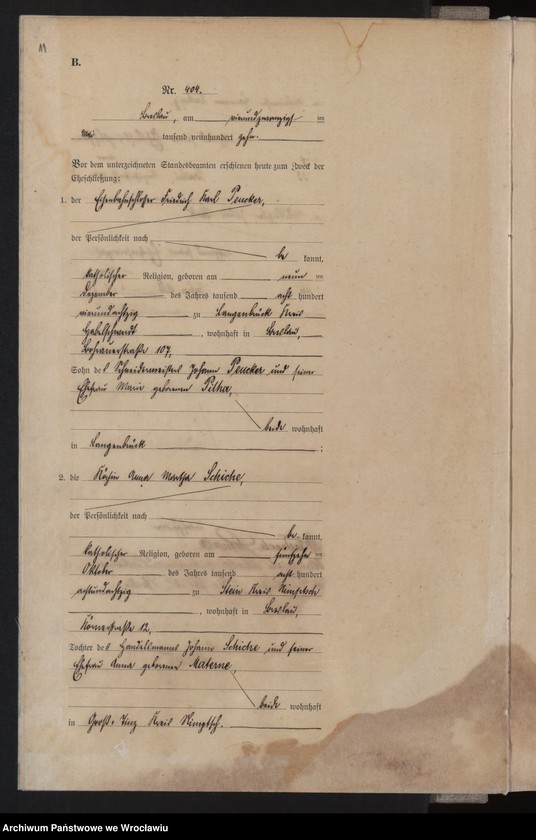 11
B.
Nr. 404.
Breslau, am vierundzwanzigsten im
Mai tausend neunhundert zehn.
Vor dem unterzeichneten Standesbeamten erschienen heute zum Zweck der
Eheschließung:
1. der Eisenbahnschlosser Friedrich Karl Peucker,
der Persönlichkeit nach
be kannt,
katholischer Religion, geboren am neunten
Dezember des Jahres tausend acht hundert
vierundachtzig zu Langenbrück Kreis
Habelschwerdt, wohnhaft in Breslau,
Bohrauerstraße 107,
Sohn des Schneidermeisters Johann Peucker und seiner
Ehefrau Maria geborenen Pitha,
beide wohnhaft
in Langenbrück ;
2. die Köchin Anna Martha Schiche,
der Persönlichkeit nach
be kannt,
katholischer Religion, geboren am fünfzehnten
Oktober des Jahres tausend acht hundert
achtundachtzig zu Stein Kreis Nimptsch
, wohnhaft in Breslau,
Körnerstraße 12,
Tochter des Handelsmanns Johann Schiche und seiner
Ehefrau Anna geborenen Materne,
beide wohnhaft
in Groß-Tinz Kreis Nimptsch.
Archiwum Państwowe we Wrocławiu